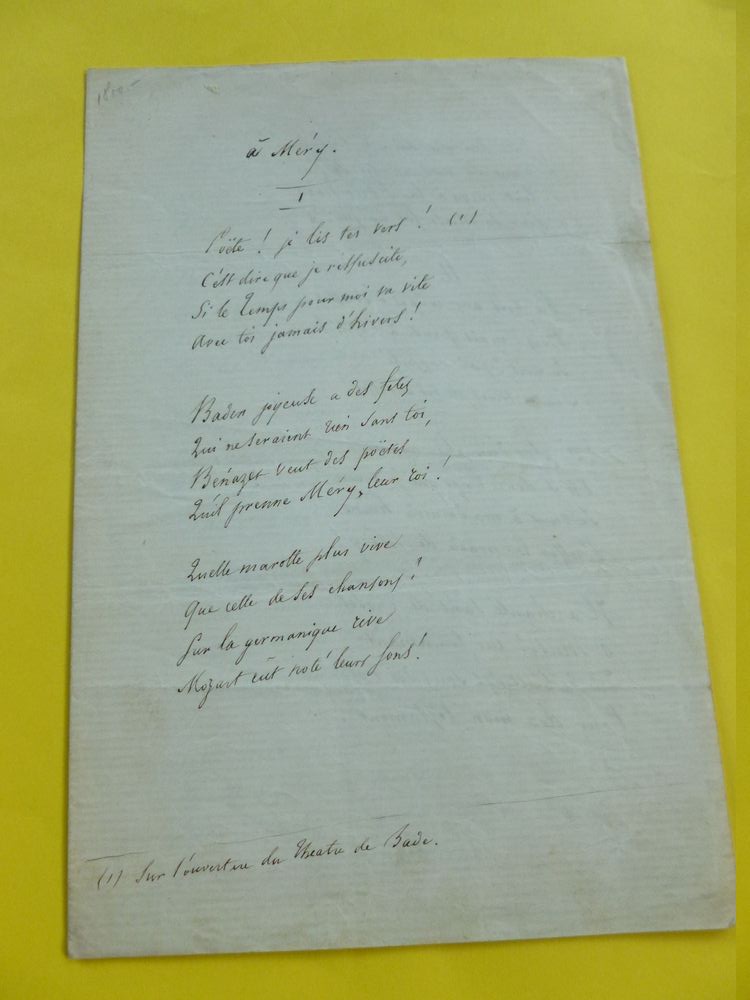 à Méry.
I
Poëte ! je lis tes vers ! (1)
C'est dire que je ressuscite,
Si le Temps pour moi va vite
Avec toi jamais d'hivers !
Baden joyeuse a des fetes
Qui ne seraient rien sans toi,
Bénazet veut des poëtes
Qu'il prenne Méry, leur roi !
Quelle marotte plus vive
Que celle de ses chansons !
Sur la germanique rive
Mozart eût noté leurs sons !
(1) Sur l'ouverture du Théatre de Bade.